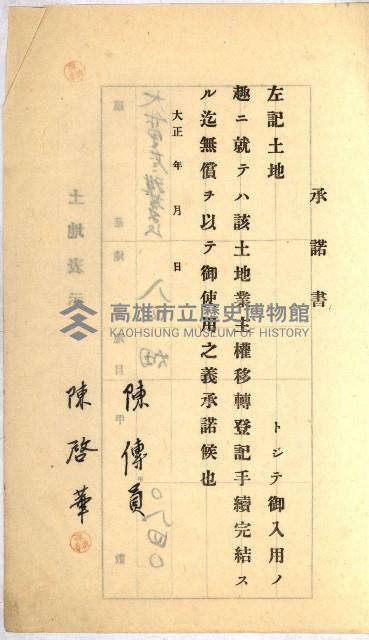 承諾書
左記土地 トシテ御入用ノ
趣ニ就テハ該土地業主權移轉登記手續完結ス
ル迄無償ヲ以テ御使用之義承諾候也
大正 年 月 日
陳傳員
陳啓華
土地表示
高雄市立歷史博物館
KAOHSIUNG MUSEUM OF HISTORY